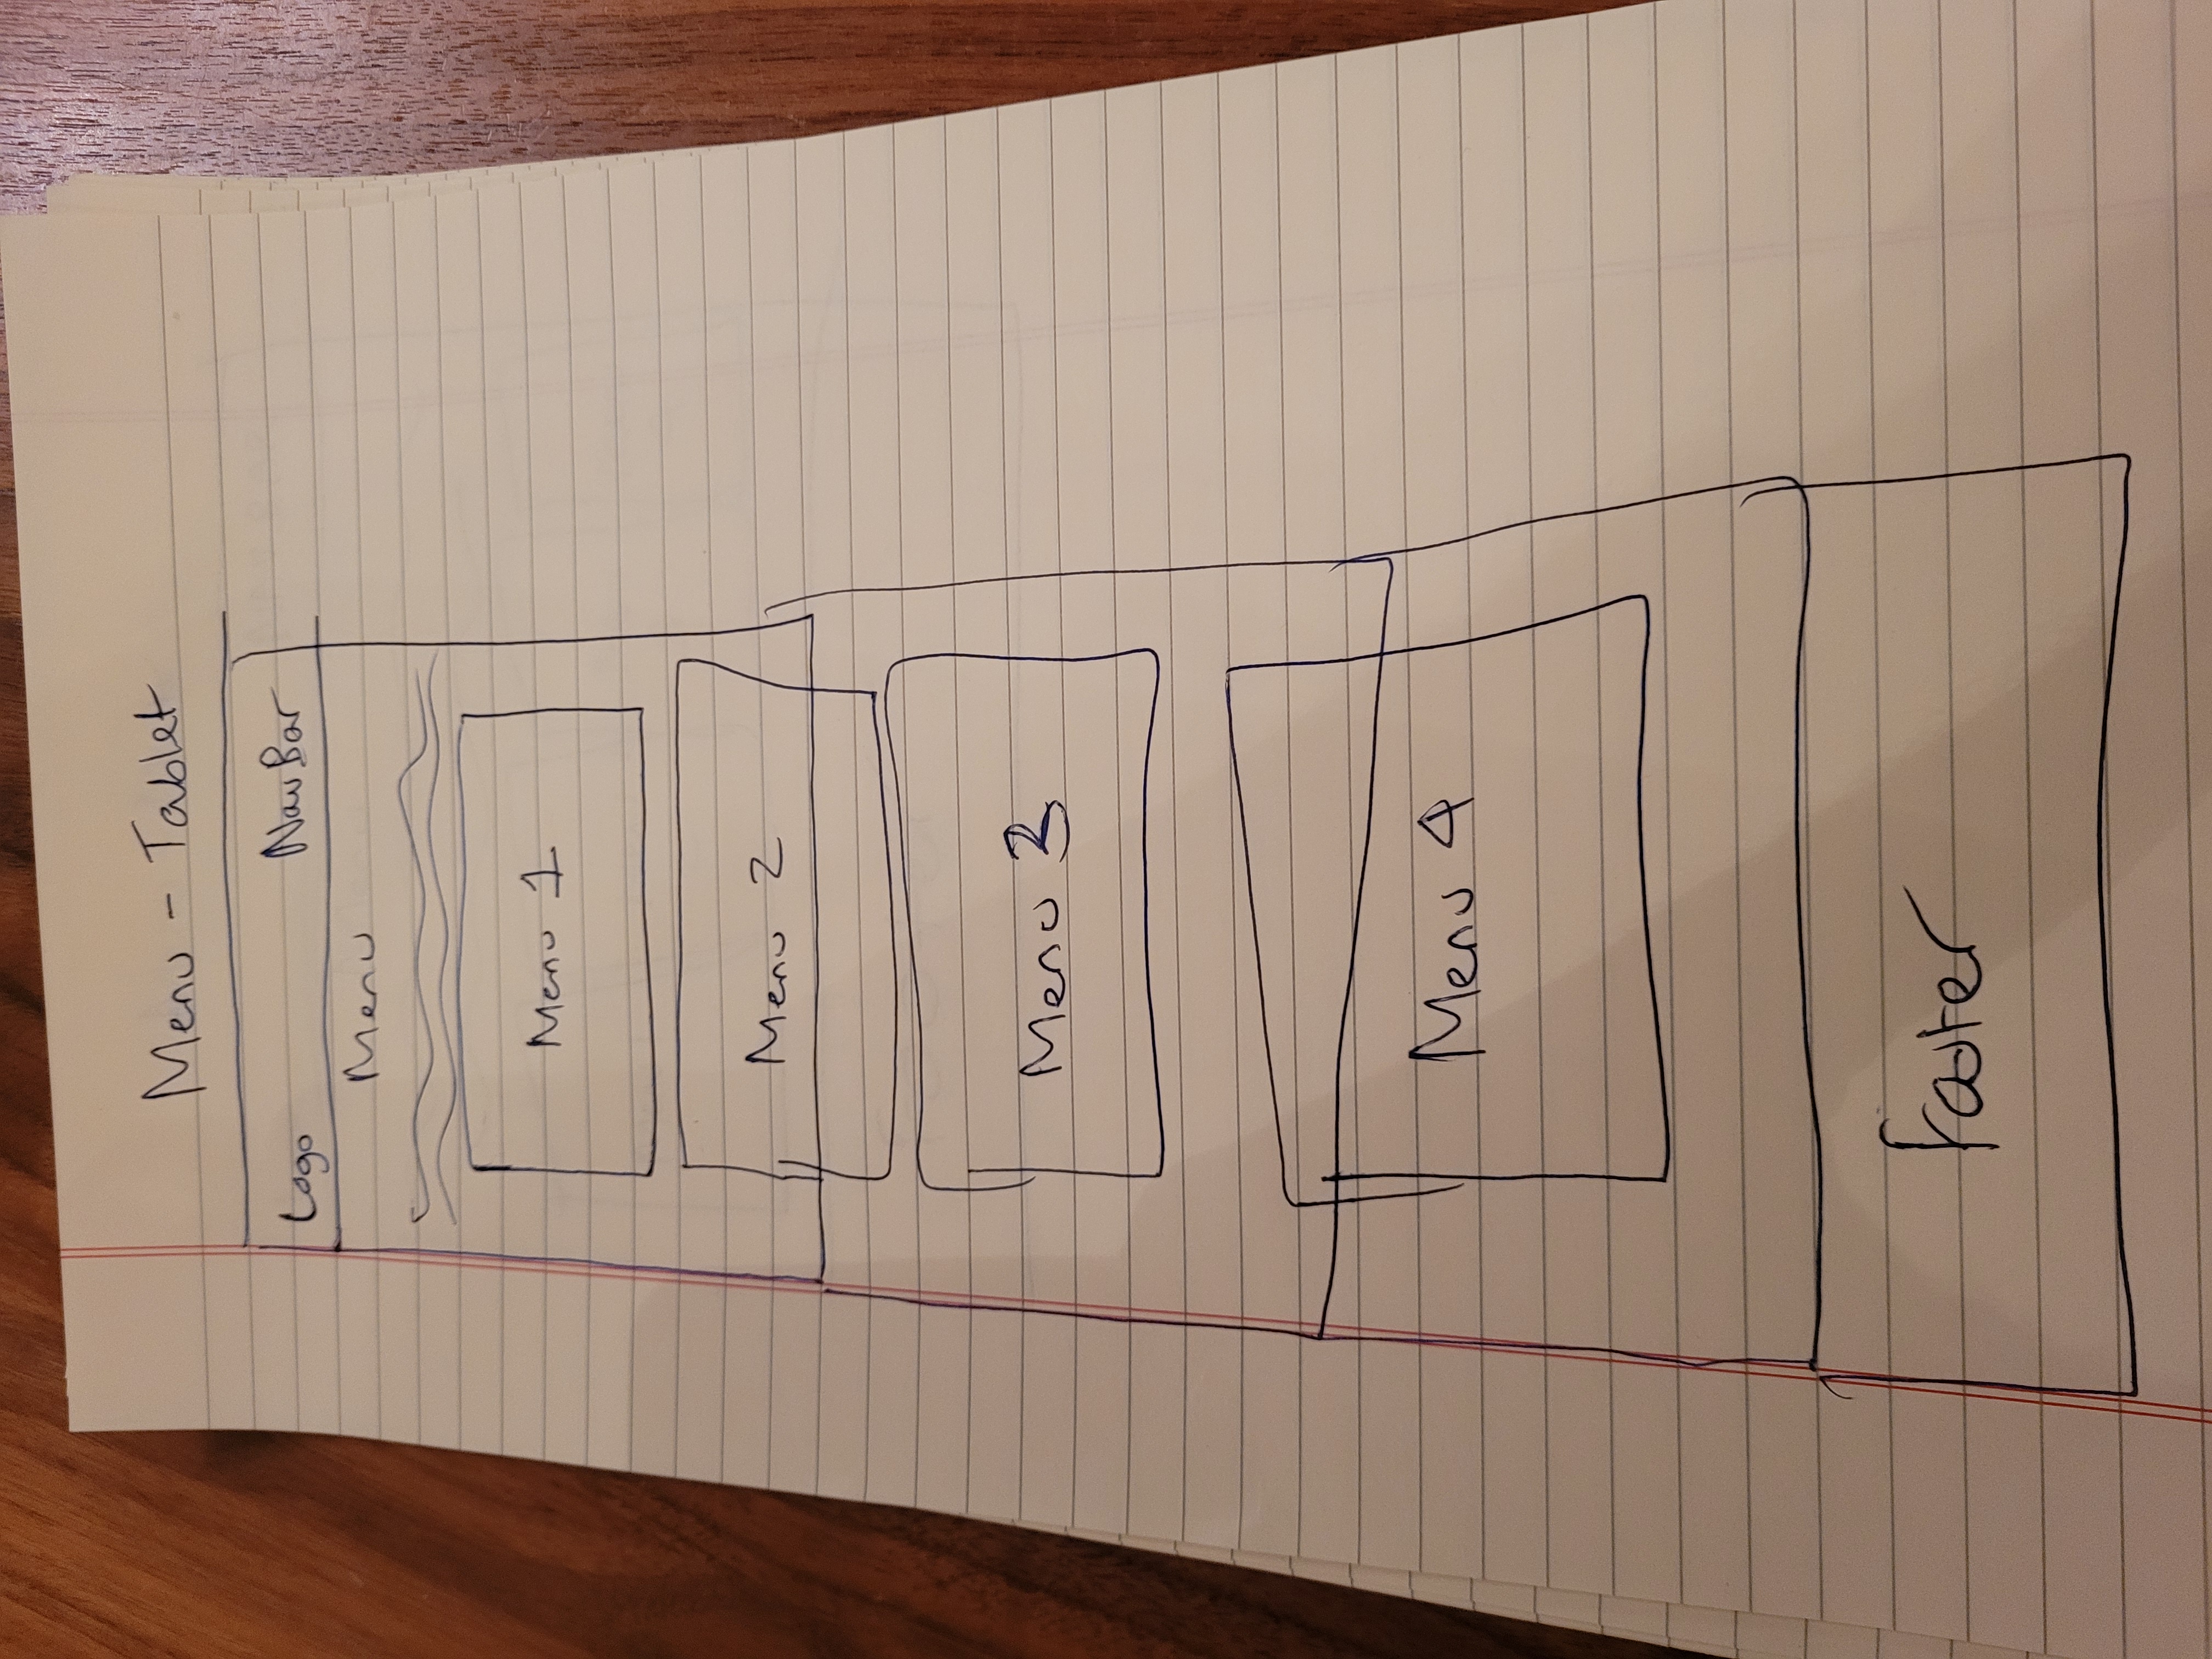 Menu - Tablet
Logo NavBar
Menu
Menu 1
Menu 2
Menu 3
Menu 4
Footer